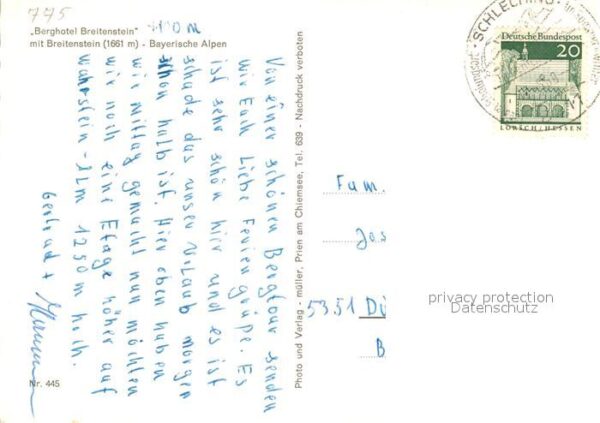 775
„Berghotel Breitenstein"
mit Breitenstein (1661 m) - Bayerische Alpen
Von einer schönen Bergtour senden
wir Euch Liebe Feriengrüße. Es
ist sehr schön hier und es ist
schade das unser Urlaub morgen
schon halb ist. Hier oben haben
wir mittag gemacht nun möchten
wir noch eine Etage höher auf
1250m hoch.
Gertrud +
Nr. 445
Photo und Verlag - müller, Prien am Chiemsee, Tel. 639 - Nachdruck verboten
SCHLECHING
Deutsche Bundespost
20
LORSCH/HESSEN
Fam.
Jos
5351 Dü
B
privacy protection
Datenschutz